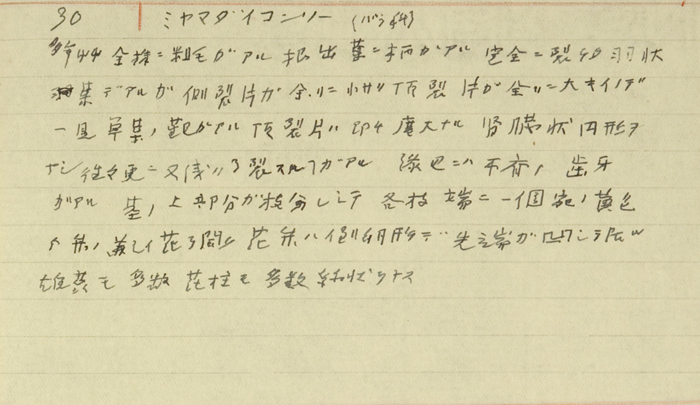 30 ミヤマダイコンソー (バラ科)
多年草 全株ニ粗毛ガアル 根出葉ニ柄ガアル 完全ニ裂ケ羽状
葉デアルガ側裂片ガ 小サク頂裂片ガ 大キイノデ
一見単葉ノ観ガアル 頂裂片ハ 即チ廣大ナル 腎臓状円形ヲ
ナシ往々更ニ 裂スル ガアル 縁辺ニハ不斉ノ歯牙
ガアル 茎ノ上部分ガ枝分レシテ 各枝端ニ一個宛ノ黄色
ノ美シイ花ヲ開ク 花弁ハ倒卵形デ 先端ガ凹ンデ
雄蕊モ多数 花柱モ多数 糸状ヲナス